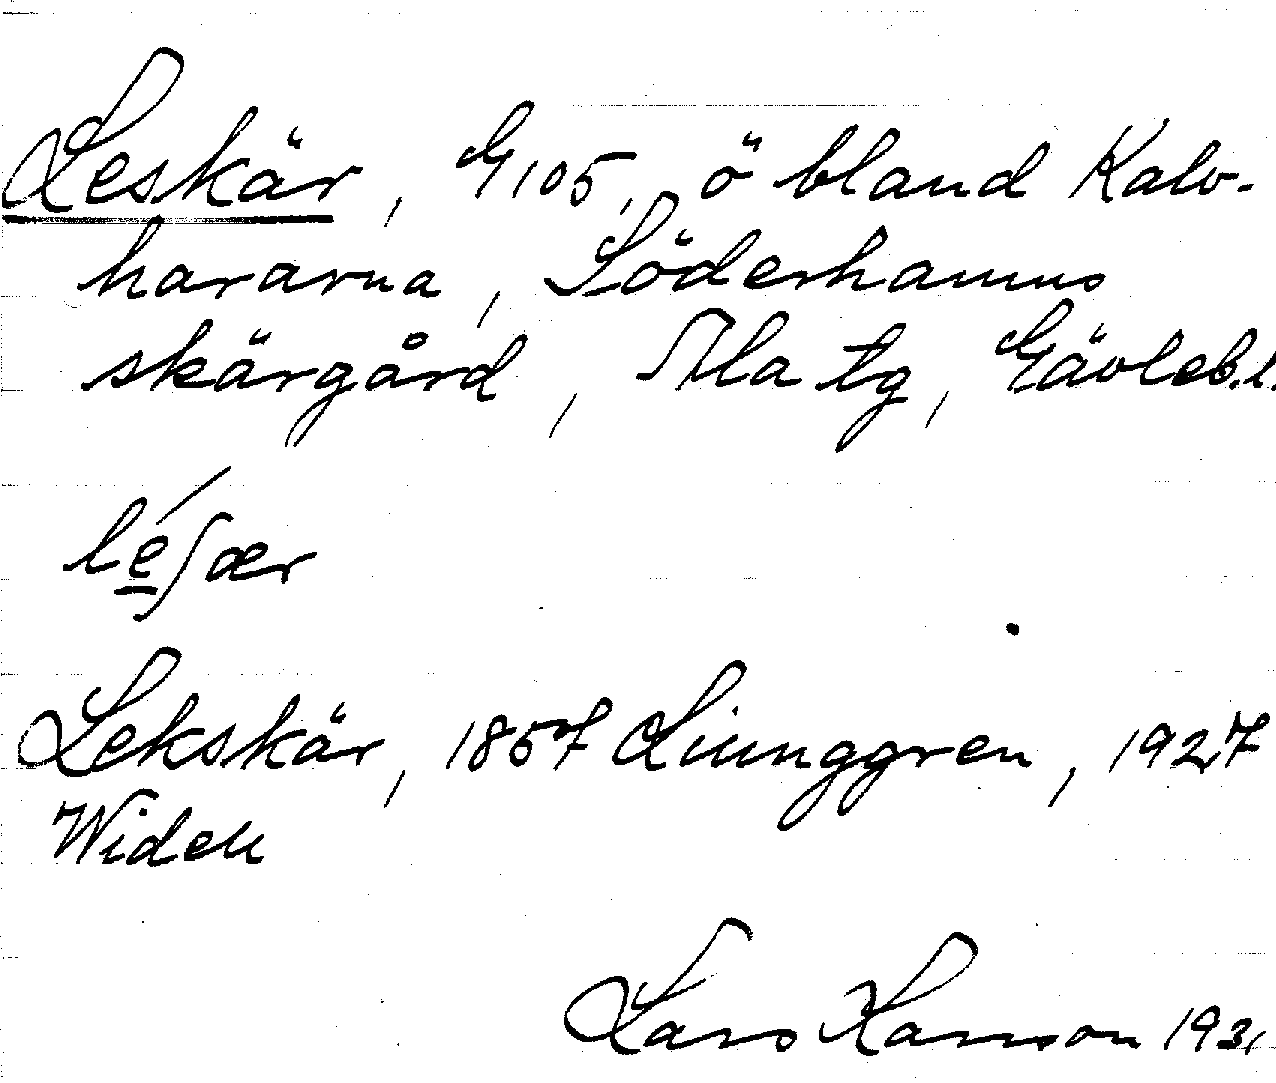 Leskär, G105, ö bland Kalv-
hararna, Söderhamns
skärgård, Ala tg, Gävleb.l.
lé̲ʃær
Lekskär, 1857 Liunggren, 1927
Widell
Lars Hanson 1931